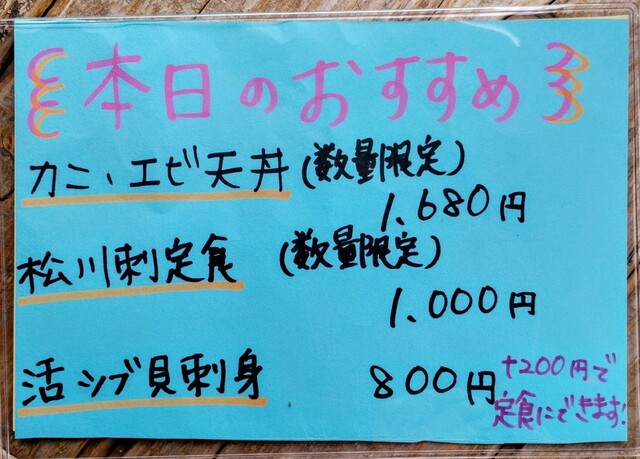 本日のおすすめ
カニ、エビ天丼(数量限定)
1,680円
松川刺定食 (数量限定)
1,000円
活ツブ貝刺身 800円
+200円で
定食にできます!